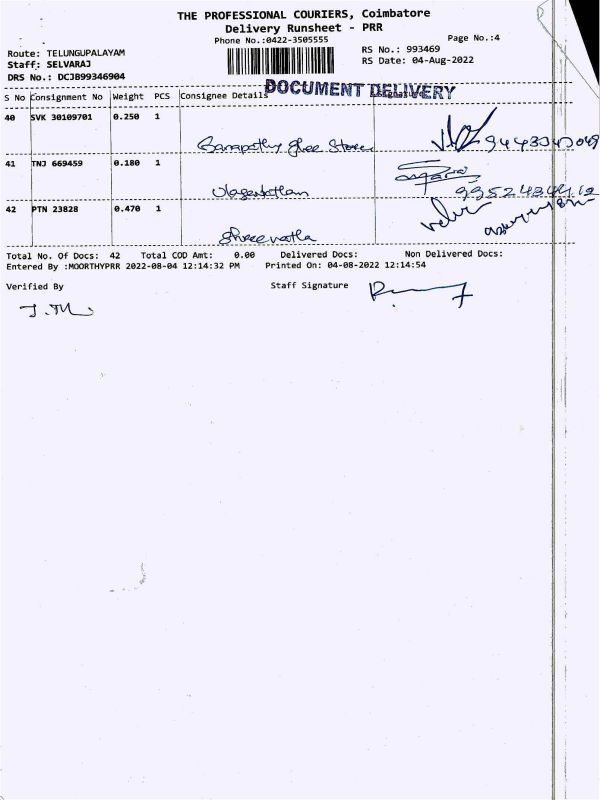 THE PROFESSIONAL COURIERS, Coimbatore
Delivery Runsheet - PRR
Phone No.:0422-3505555
Page No.:4
Route: TELUNGUPALAYAM
RS No.: 993469
Staff: SELVARAJ
RS Date: 04-Aug-2022
DRS No.: DCJB99346904
DOCUMENT DELIVERY
S No Consignment No Weight PCS Consignee Details
40 SVK 30109701 0.250 1
Ganapathy Ghee Stores
41 TNJ 669459 0.180 1
42 PTN 23828 0.470 1
Shreevatha
Total No. Of Docs: 42 Total COD Amt: 0.00 Delivered Docs: Non Delivered Docs:
Entered By :MOORTHYPRR 2022-08-04 12:14:32 PM Printed On: 04-08-2022 12:14:54
Verified By Staff Signature